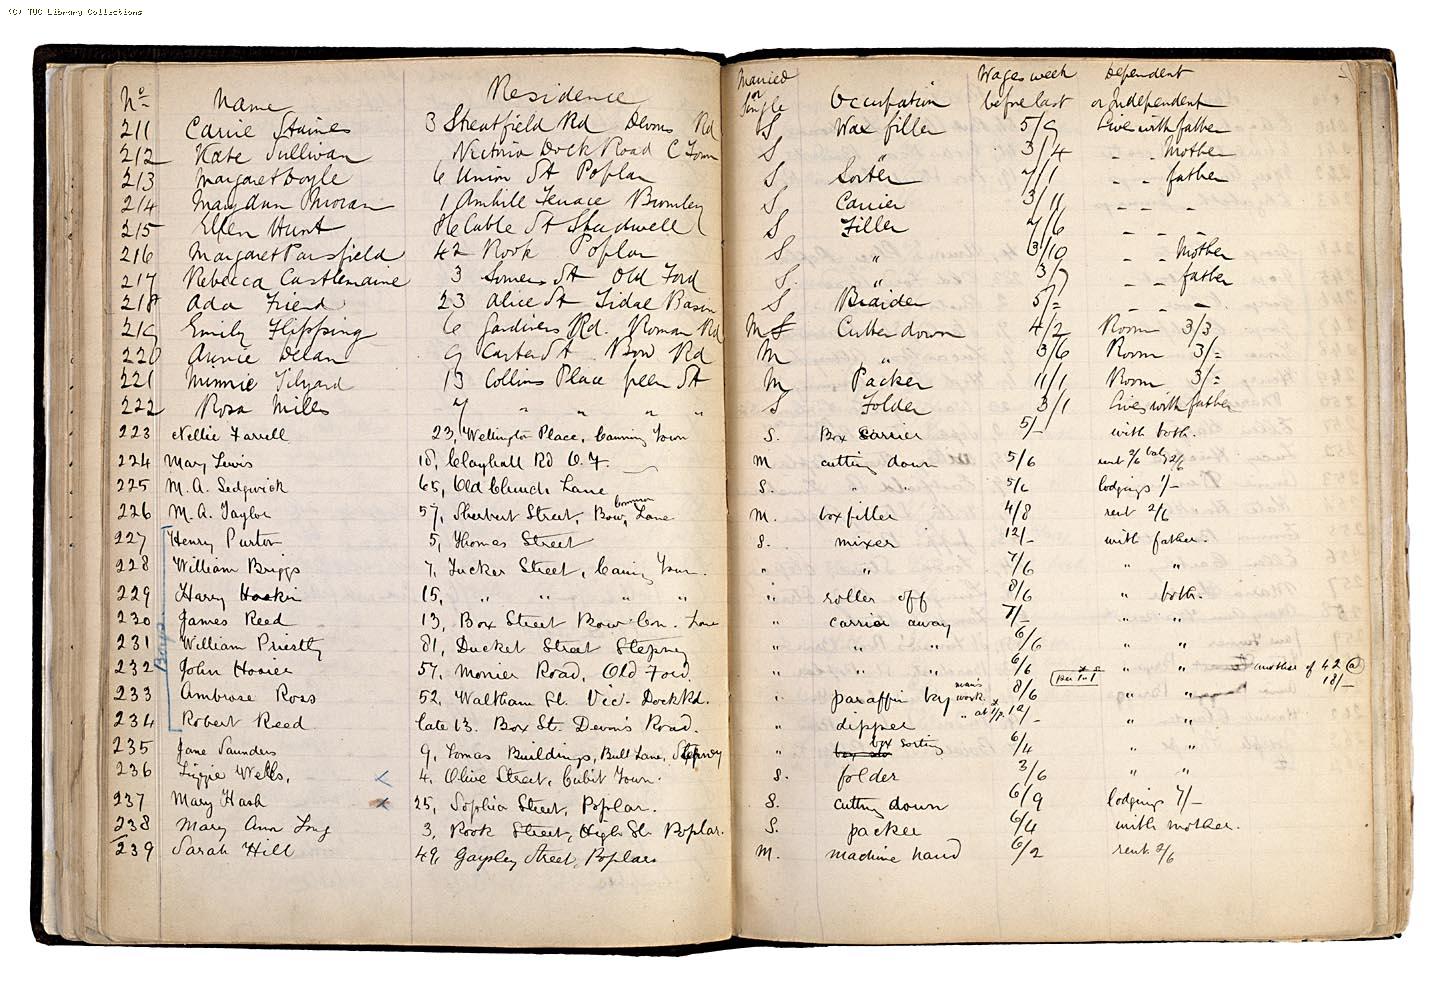 (C) TUC Library Collections
No Name Residence Married or Single Occupation Wages week before last Dependent or Independent
211 Carrie Staines 3 Streatfield Rd Devons Rd S Wax filler 5/9 Live with father
212 Kate Sullivan Victoria Dock Road C Town S " 3/4 - - Mother
213 Margaret Doyle 6 Union St Poplar S Sorter 7/1 - - father
214 1 Terrace Bromley S Carrier 3/11 - - -
215 Ellen Hunt Cable St Shadwell S Filler 7/6 - - -
216 Margaret Parsfield 42 Rook Poplar S " 3/10 - - Mother
217 Rebecca Castlemaine 3 Somers St Old Ford S. " 3/7 - - father
218 Ada Friend 23 Alice St Tidal Basin S Braider 5/= - - -
219 Emily Flipping 6 Gardiners Rd. Roman Rd M Cutter down 4/2 Room 3/3
220 Annie Delan 9 Carter St Bow Rd M " 3/6 Room 3/=
221 Minnie Tilyard 13 Collins Place Green St M Packer 11/1 Room 3/=
222 Rosa Miles 7 " " " " S Folder 3/1 Lives with father
223 Nellie Farrell 23, Wellington Place, Canning Town S. Box carrier 5/- with both.
224 Mary Lewis 18, Clayhall Rd O.F. M cutting down 5/6 rent 2/6 baby 2/6
225 M.A. Sedgwick 65, Old Church Lane S. " " 5/6 lodgings 1/-
226 M.A. Taylor 57, Sherbert Street, Bow Common Lane M. box filler 4/8 rent 2/6
227 Henry Purton 5, Thomas Street S. mixer 12/- with father.
228 William Briggs 7, Tucker Street, Caning Town. " " 7/6 " "
229 Harry Hoskin 15, " " " " " roller off 8/6 " both.
230 James Reed 13, Box Street Bow Con. Lane " carrier away 7/- " "
231 William Priestly 81, Ducket Street Stepney " " " 6/6 " "
Boys
232 John Hosier 57, Monier Road, Old Ford. " " " 6/6 " " another of 42 @ 18/-
233 Ambrose Ross 52, Waltham St. Vic. Dock Rd. " paraffin boy man's work 8/6 " "
234 Robert Reed late 13. Box St. Devon's Road. " dipper 12/- " "
235 Jane Saunders 9, Tomas Buildings, Bull Lane, Stepney " box sorting 6/4 " "
236 Lizzie Wells, 4, Olive Street, Cubit Town. S. folder 3/6 " "
237 Mary Hash x 25, Sophia Street, Poplar. S. cutting down 6/9 lodgings 7/-
238 Mary Ann Long 3, Rook Street, High St. Poplar. S. packer 6/4 with mother.
239 Sarah Hill 49, Street, Poplar M. machine hand 6/2 rent 2/6